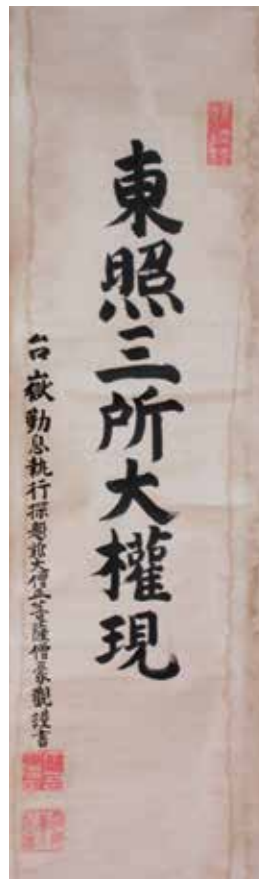 東照三所大權現
台嶽勤息執行探題前大僧正菩薩僧豪觀謹書